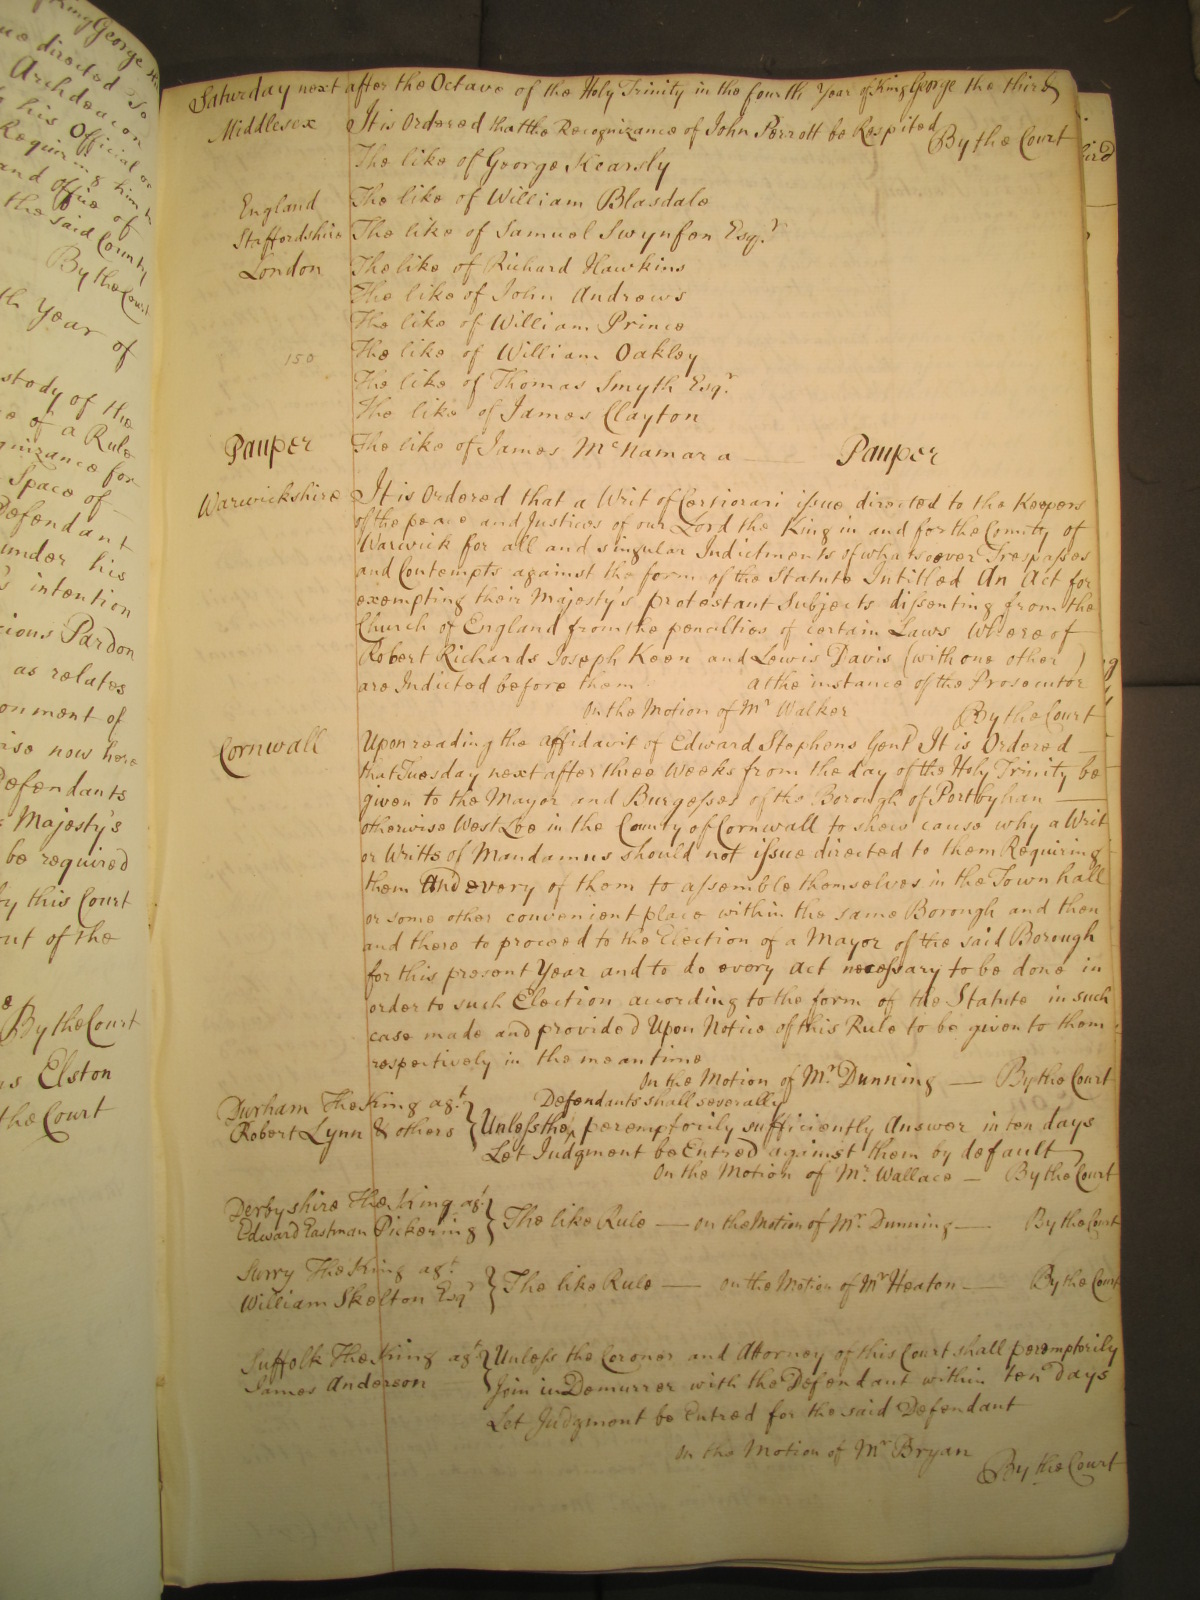 ring George the
ue directed to
Archdeacon
to his Official or
Requiring him to
and office of
the said County
By the Court
th Year of
stody of the
e of a Rule
gnizance for
Space of
Defendant
under his
's intention
cious Pardon
as relates
onment of
ise now here
Defendants
Majesty's
be required
by this Court
out of the
By the Court
is Elston
the Court
Saturday next after the Octave of the Holy Trinity in the fourth Year of King George the third
Middlesex It is Ordered that the Recognizance of John Perrott be Respited By the Court
The like of George Kearsly
England The like of William Blasdale
Staffordshire The like of Samuel Swynfen Esqr
London The like of Richard Hawkins
The like of John Andrews
The like of William Prince
150 The like of William Oakley
The like of Thomas Smyth Esqr
The like of James Clayton
Pauper The like of James McNamara Pauper
Warwickshire It is Ordered that a Writ of Certiorari issue directed to the Keepers
of the peace and Justices of our Lord the King in and for the County of
Warwick for all and singular Indictments of whatsoever Trespasses
and Contempts against the form of the Statute Intitled An Act for
exempting their Majesty's protestant Subjects dissenting from the
Church of England from the penalties of certain Laws Whereof
Robert Richards Joseph Keen and Lewis Davis (with one other)
are Indicted before them at the instance of the Prosecutor
On the Motion of Mr Walker By the Court
Cornwall Upon reading the affidavit of Edward Stephens Gent It is Ordered
that Tuesday next after three Weeks from the day of the Holy Trinity be
given to the Mayor and Burgesses of the Borough of Portbyhan
otherwise West Loe in the County of Cornwall to shew cause why a Writ
or Writts of Mandamus should not issue directed to them Requiring
them And every of them to assemble themselves in the Town hall
or some other convenient place within the same Borough and then
and there to proceed to the Election of a Mayor of the said Borough
for this present Year and to do every act necessary to be done in
order to such Election according to the form of the Statute in such
case made and provided Upon Notice of this Rule to be given to them
respectively in the mean time
On the Motion of Mr Dunning — By the Court
Durham The King agt Defendants shall severally
Robert Lynn & others } Unless the ^ peremptorily sufficiently Answer in ten days
Let Judgment be Entred against them by default
On the Motion of Mr Wallace — By the Court
Derbyshire The King agt
Edward Eastman Pickering } The like Rule — on the Motion of Mr Dunning — By the Court
Surry The King agt
William Skelton Esqr } The like Rule — on the Motion of Mr Heaton — By the Court
Suffolk The King agt } Unless the Coroner and Attorney of this Court shall peremptorily
James Anderson Join in Demurrer with the Defendant within ten Days
Let Judgment be Entred for the said Defendant
On the Motion of Mr Bryan
By the Court